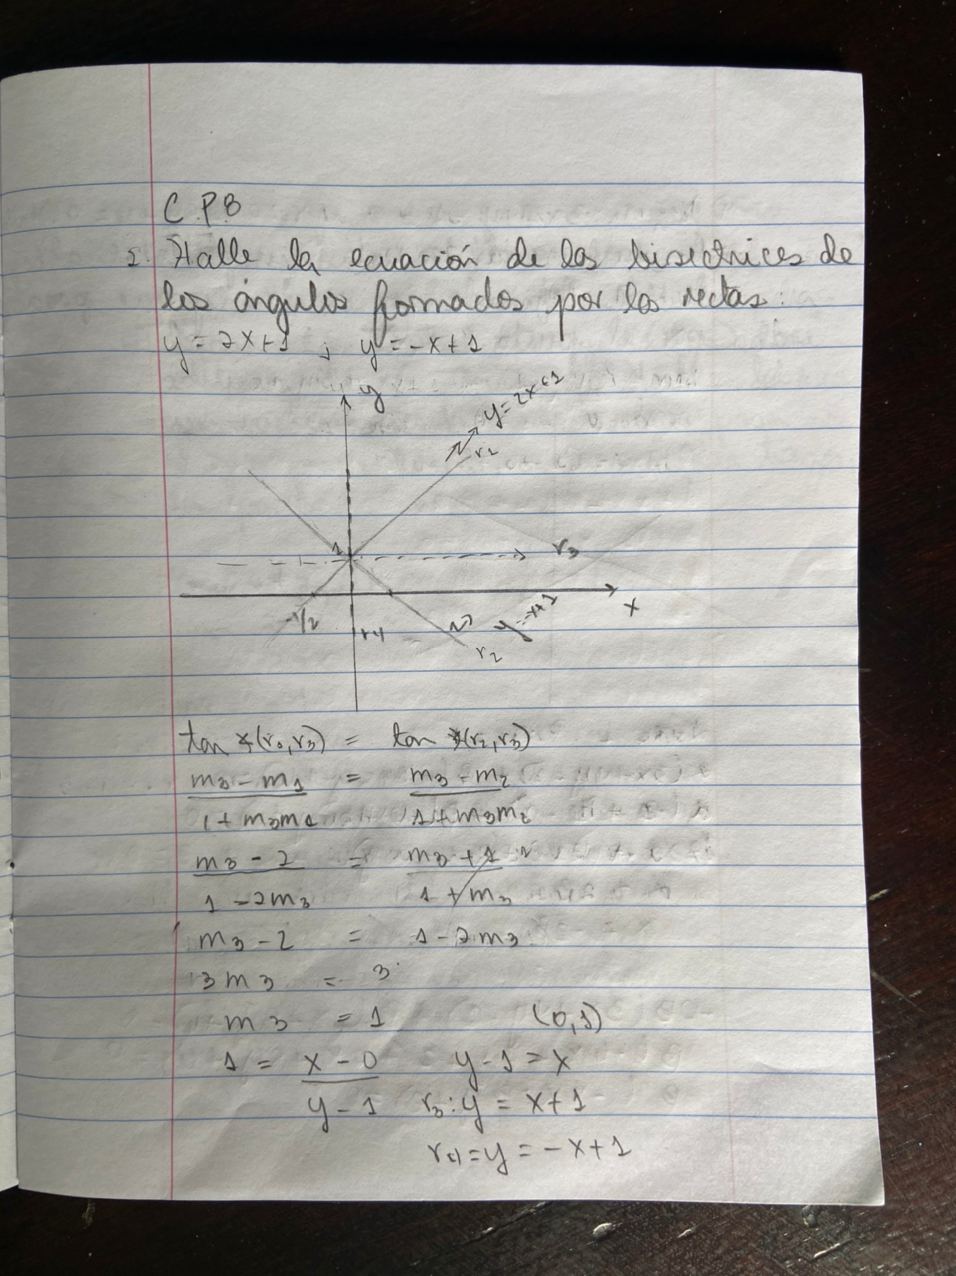 C.P.B
2. Halle la ecuación de las bisectrices de
los ángulos formados por las rectas:
y = 2x+1 ; y = -x+1
y
y = 2x+1
r2
1
r3
-1/2
x
y = -x+1
r4
r2
tan ∡(r1,r3) = tan ∡(r2,r3)
m3 - m1 = m3 - m2
1 + m3m1 1 + m3m2
m3 - 2 = m3 + 1
1 - 2m3 1 + m3
m3 - 2 = 1 - 2m3
3m3 = 3
m3 = 1 (0,1)
1 = x - 0 y - 1 = x
y - 1 r3: y = x+1
r4 = y = -x+1